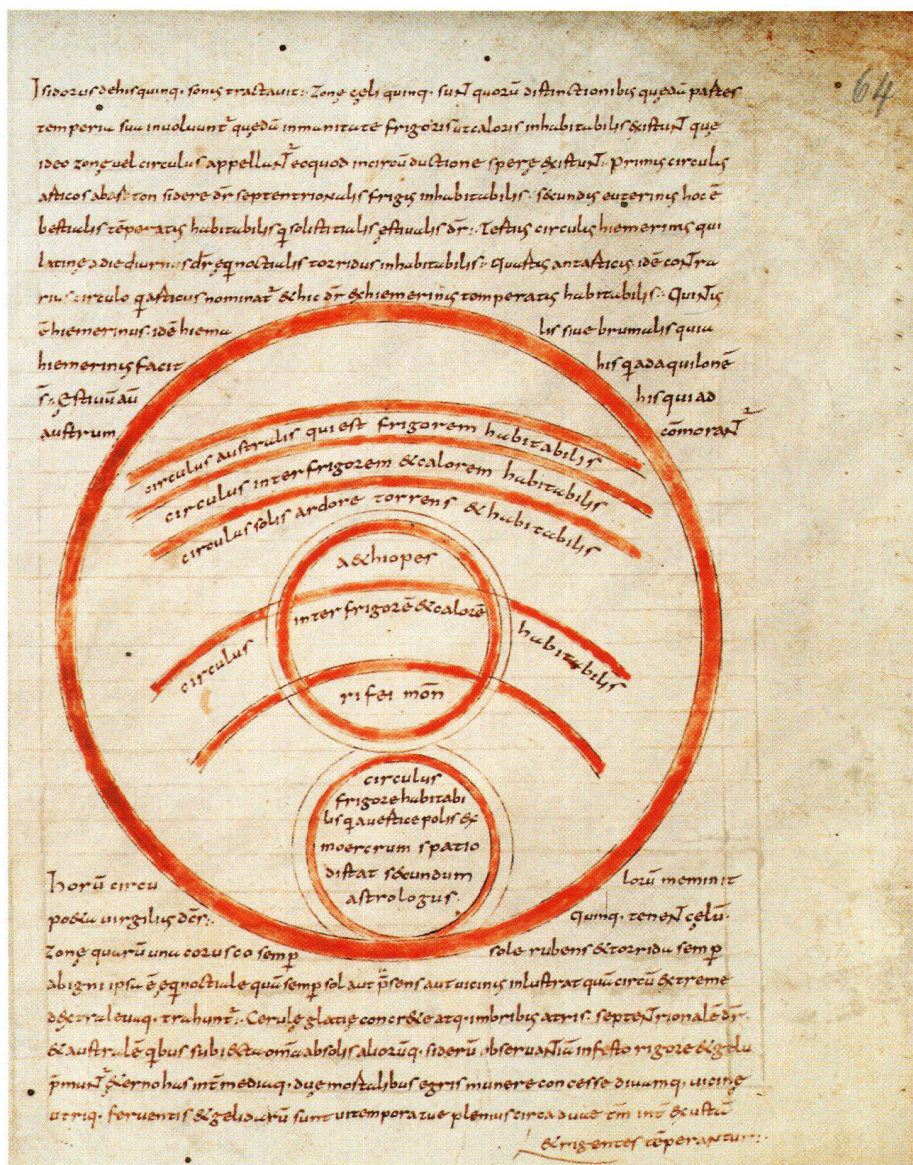 Isidorus dehis quinq. sonis tractavit:. Zonę cęli quinq. suNt quorū distinctionibus quedā partes
64
temperia sua involuunt̃ quedā inmanitate frigoris aut caloris inhabitabilis existuNt que
ideo zonę vel circulus appellaNt̃ eo quod in circū ductione sperę existuNt:. Primus circulus
articos ab arcton sidere dr̄ septentrionalis frigis inhabitabilis. secundus euterinus hoc ē
bestialis tēperatus habitabilis q̄ solistitialis ęstivalis dr̄:. Tertius circulus hiemerinus qui
latine a die diurnus dr̄ eqinoctialis torridus inhabitabilis:. Quartus antarticus idē coNtra
rius circulo q̄ articus nominat̃ & hic dr̄ & hiemerinus temperatus habitabilis:. QuiNtus
ē hiemerinus. idē hiema lis sive brumalis quia
hiemerinus facit his q̄ ad aquilonē
s̄:. Ęstivū aū his qui ad
austrum cōmoraNt̃
circulus australis qui est frigorem habitabilis
circulus inter frigorem & calorem habitabilis
circulus solis ardore torrens & habitabilis
aethiopes
inter frigorē & calorē
circulus habitabilis
rifei mon̄
circulus
frigore habitabi
lis q̄ a vertice polis &
moercrum spatio
distat secundum
astrologus.
horū circu lorū meminit
poeta virgilius dc̄s:. quinq. teneNt cęlū.
Zonę quarū una corusco semp̄ sole rubens & torrida semp̄
ab igni ipsa ē eqinoctiale quā semp̄ sol aut p̄sens aut vicinus inlustrat quā circū extreme
dextra levaq. trahunt̃:. Cerulę glatie concrete atq. imbribus atris. septeNtrionalē dr̄.
& australē qbus subiecta om̄a absolis aliorūq. siderū observaNtia infesto rigore & gelu
p̄muNt̃ &erno has int̄ mediaq. due mortalibus egris munere concesse divumq. vicinę
utriq. ferventis & gelidarū sunt ut temporatae plenius circa duae tm̄ int̄ exustā
& rigentes tēperaNtur:.